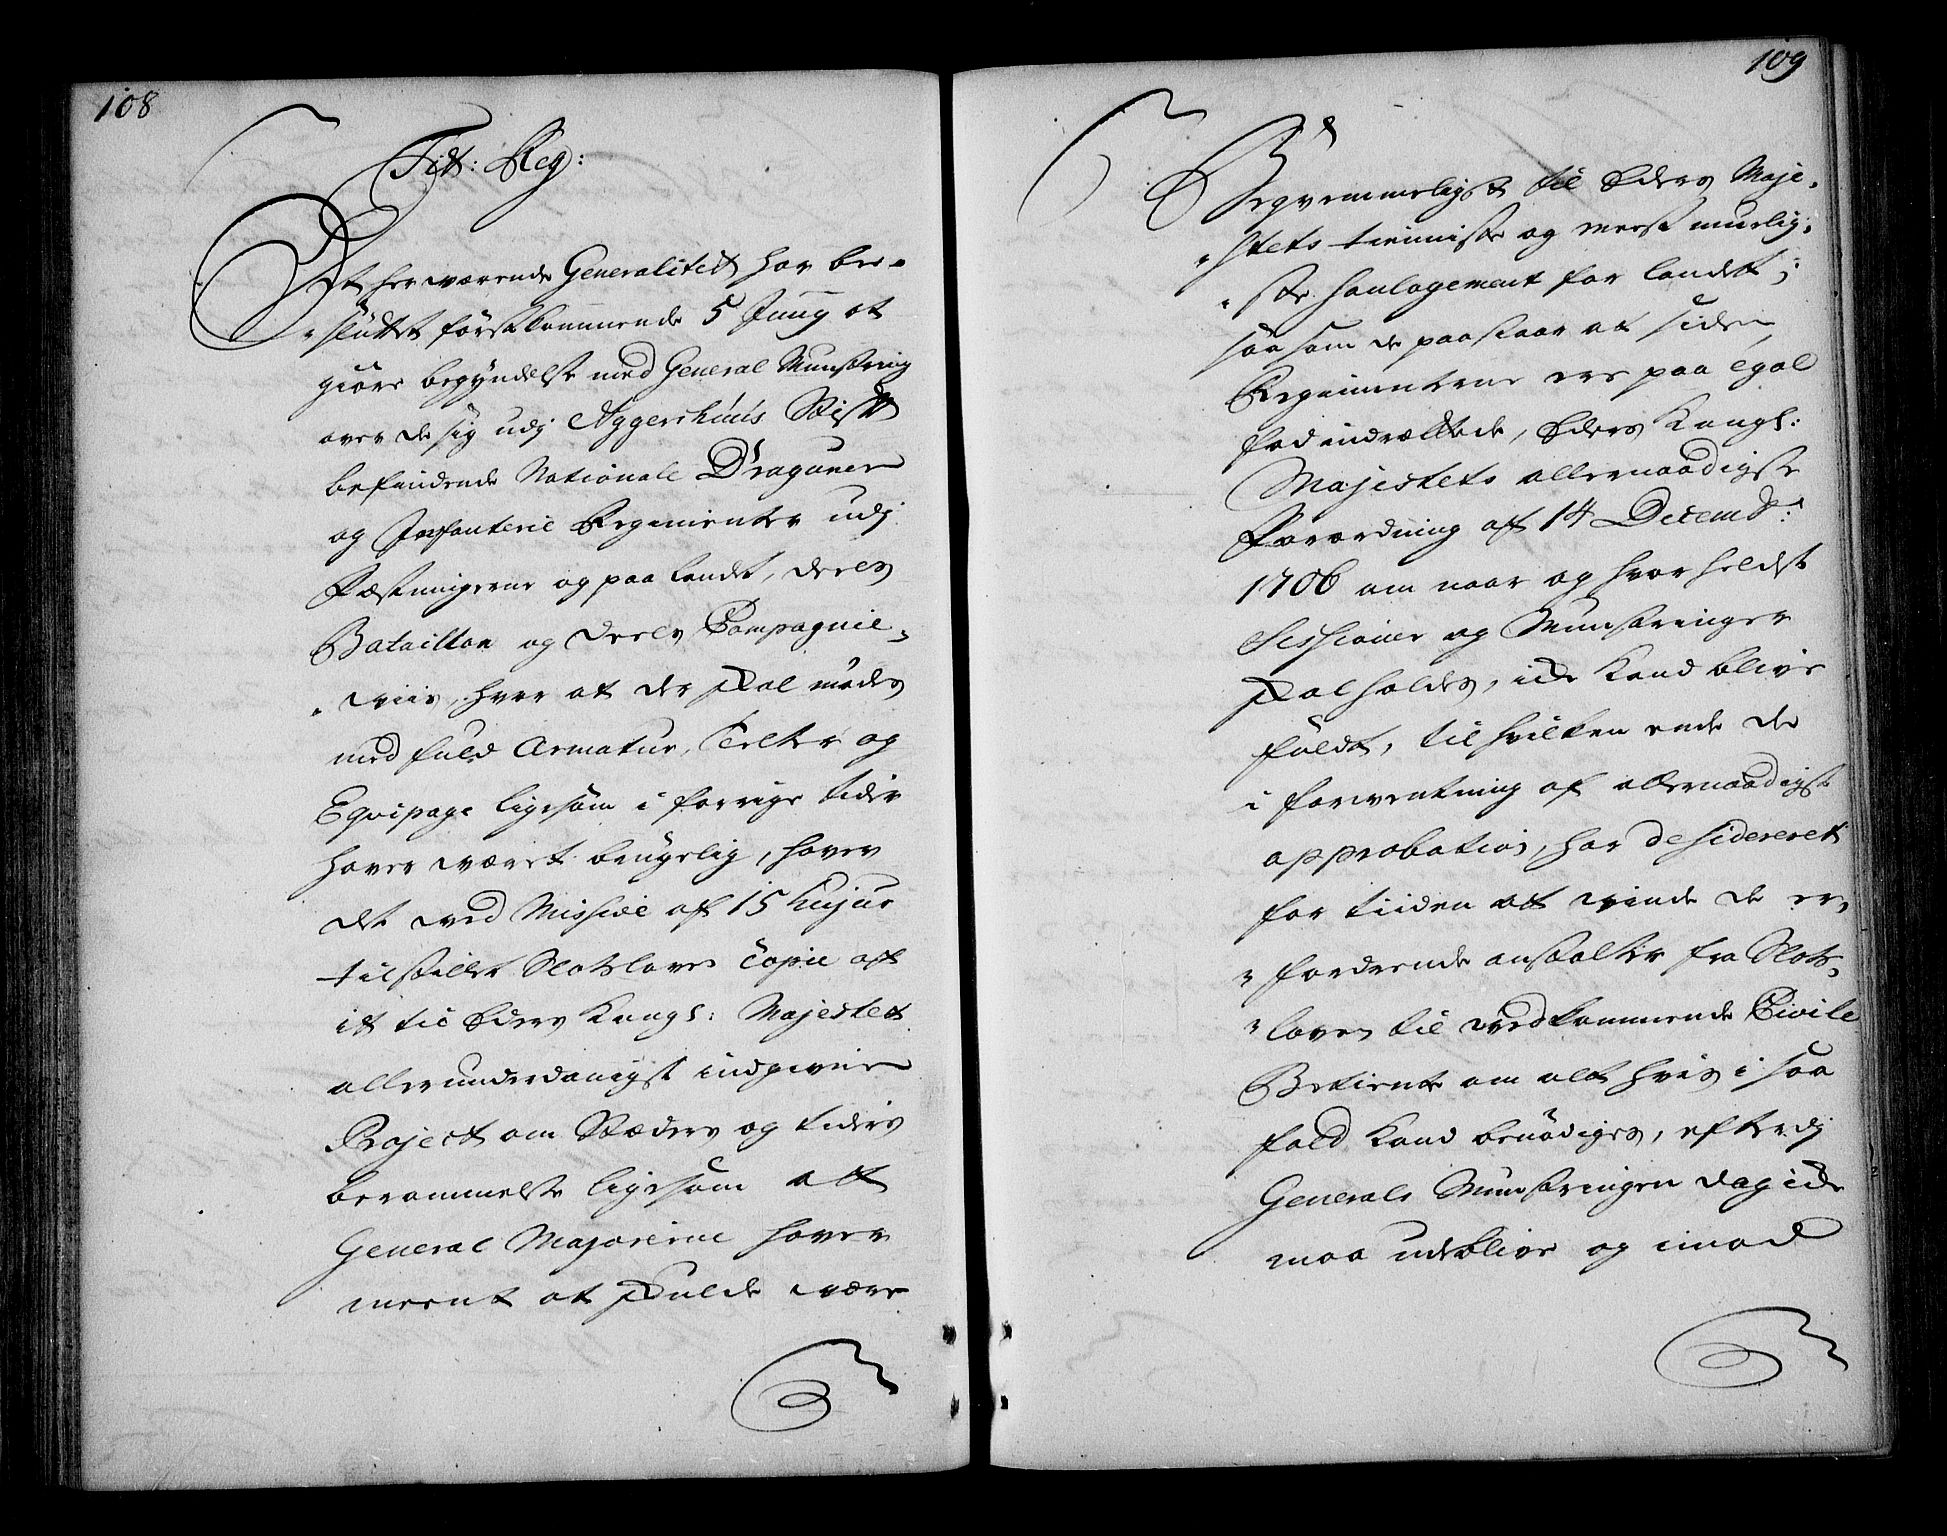 108
Tit: Reg:
At her værende Generalitet har be-
sluttet førstkommende 5 Junij at
giøre begyndelse med General Munstring
over de sig udj Aggershuus Stift
befindende Nationale Dragoner
og Infanterie Regimenter udj
Fæstningerne og paa landet, deels
Bataillon og deels Compagnie-
viis, hver at der skal mødes
med fuld Armatur, Telter og
Equipage ligesom i forrige tider
haver været brugelig, haver
det ved Missive af 15 hujus
tilstillet Slotsloven Copie aff
it til Eders Kongl: Majestet
allerunderdanigst indgiven
Project om Stæders og tiders
berammelse ligesom att
General Majorerne haver
meent at skulde være
109
Beqvemmeligst til Eders Maje-
stets tieniste og meest muelig-
ste Soulagement for landet;
saasom de paastaar at siden
Regimenterne ere paa egal
fod indrættede, Eders Kongl:
Majestets allernaadigste
Forordning aff 14 Decemb:
1706 om naar og hvor heldst
Sessioner og Munstringer
skal holdes, icke kand blive
fuldt, til hvilken ende de
i forventning af allernaadigst
approbation, har desidereret
for tiiden att vinde de er-
fordrende anstalter fra Slots-
loven til vedkommende Civile
Betiente om alt hvis i saa
fald kand benødiges, efterdj
Generals Munstringen dog icke
maa udeblive og imod